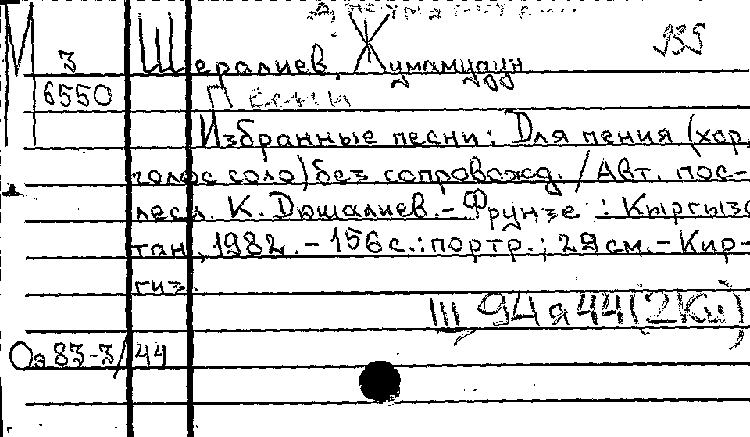 М 3
6550
935
Шералиев, Жумамудин
Песни
Избранные песни: Для пения (хор,
голос соло) без сопровожд. / Авт. пос-
лесл. К. Дюшалиев. - Фрунзе : Кыргызс
тан, 1982. - 156 с.: портр.; 29 см. - Кир-
гиз.
III 94 я 44 (2Ки)
Оэ 83-3/44